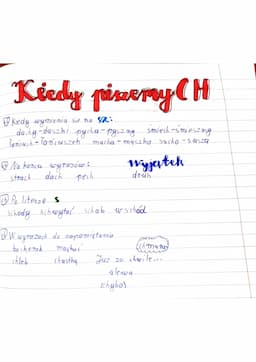 Kiedy piszemy CH
① Kiedy wymienia się na SZ:
dachy-daszki pycha-pyszny śmiech-śmieszny
łańcuch-łańcuszek mucha-muszka sucho-susza
② Na końcu wyrazów: Wyjątek
strach dach pech druh
③ Po literze s
schody schwytać schab wschód
④ W wyrazach do zapamiętania
kochanek machać chmura
chleb chustka Już za chwilę...